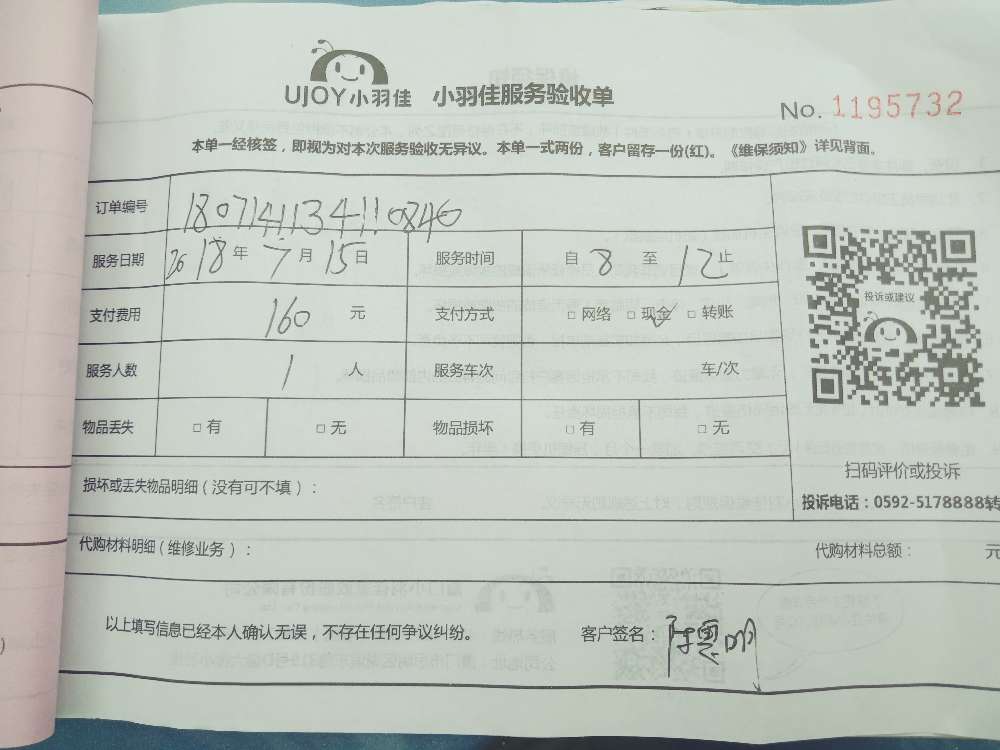 UJOY小羽佳 小羽佳服务验收单
No. 1195732
本单一经核签，即视为对本次服务验收无异议。本单一式两份，客户留存一份(红)。《维保须知》详见背面。
订单编号 1807141134110846
服务日期 2018年7月15日 服务时间 自8至12止
投诉或建议
支付费用 160 元 支付方式 □网络 □现金 □转账
服务人数 1 人 服务车次 车/次
物品丢失 □有 □无 物品损坏 □有 □无
扫码评价或投诉
损坏或丢失物品明细(没有可不填)：
投诉电话：0592-5178888转
代购材料明细(维修业务)： 代购材料总额： 元
以上填写信息已经本人确认无误，不存在任何争议纠纷。 客户签名：陈惠明